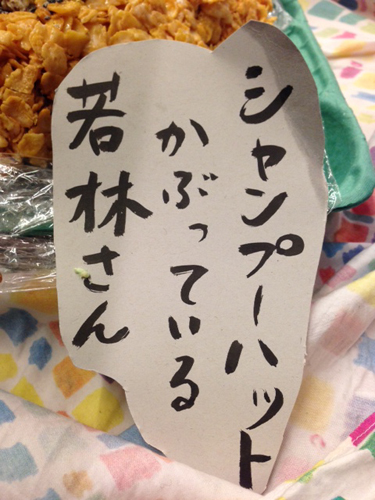 シャンプーハット
かぶっている
若林さん